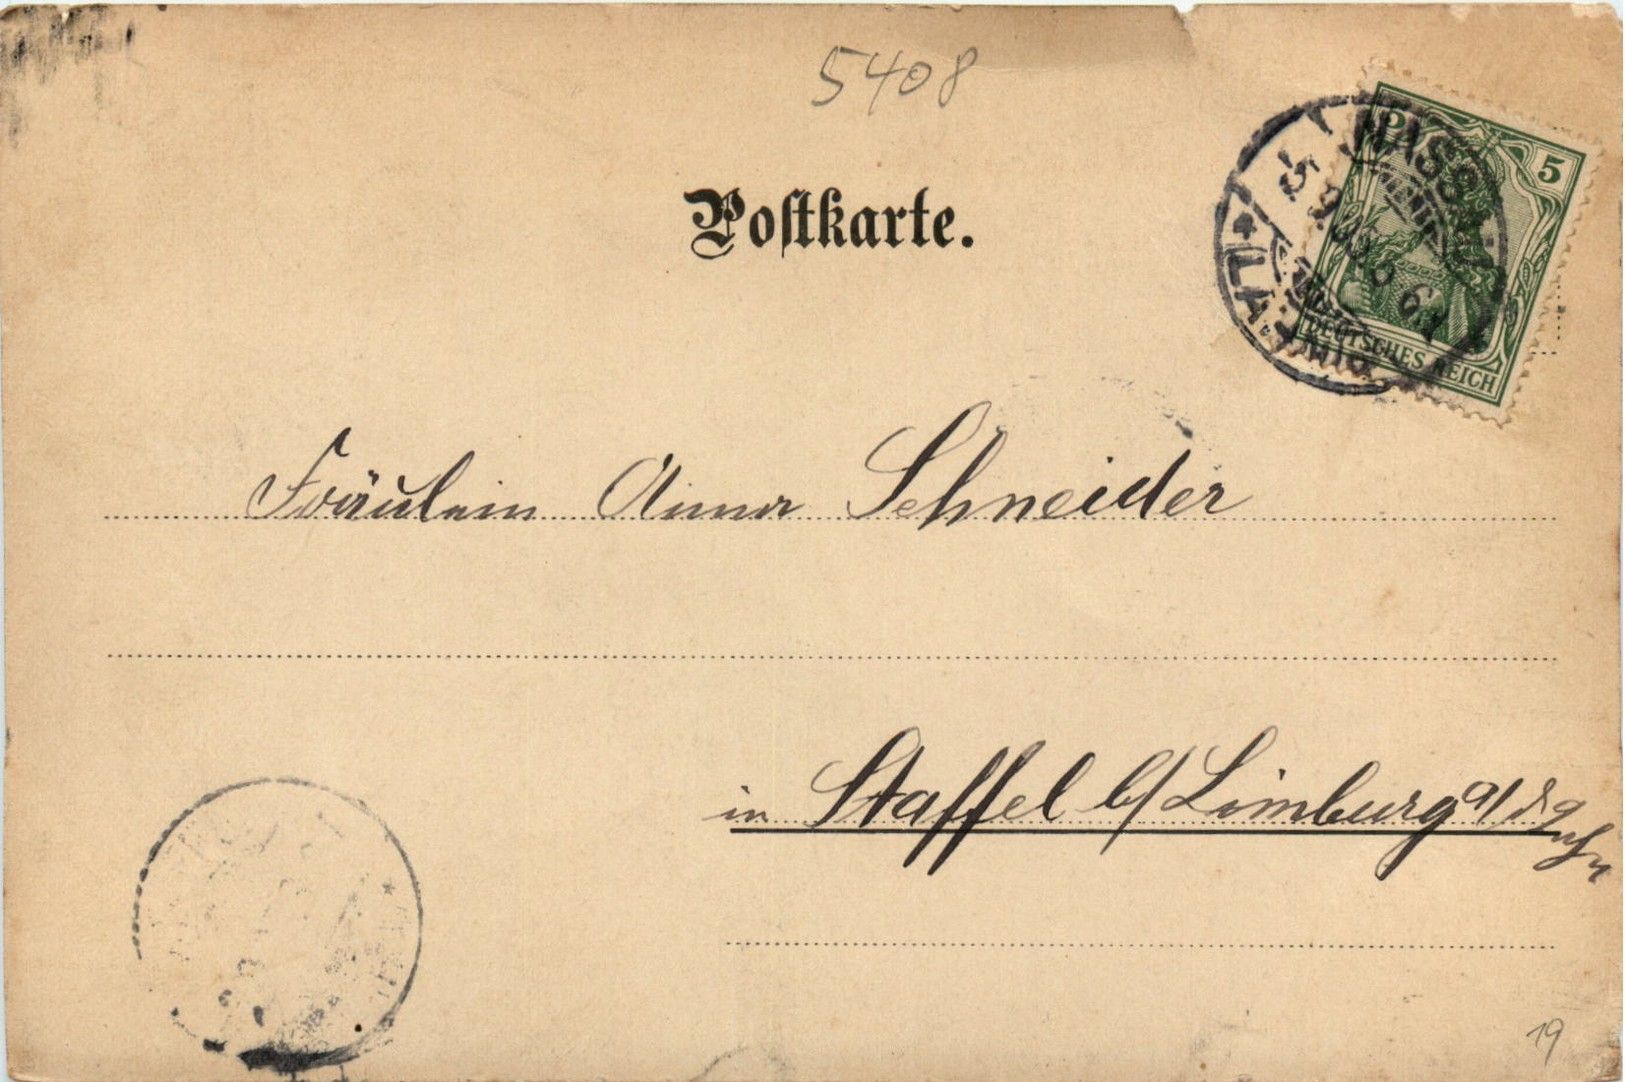 5408
Postkarte.
5
DEUTSCHES REICH
NASSAU
5. 9.
Fräulein Anna Schneider
in Staffel b/ Limburg a/d Lahn
19